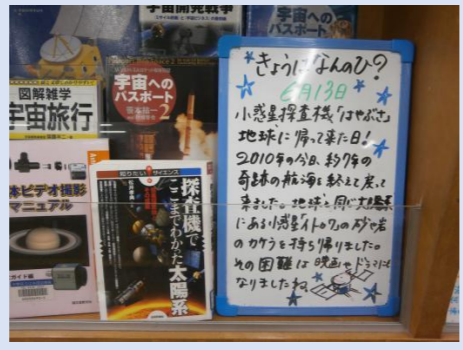 宇宙開発戦争
宇宙への
パスポート
図解雑学
宇宙旅行
宇宙への
パスポート2
ビデオ撮影
マニュアル
知りたい!サイエンス
探査機で
ここまでわかった太陽系
きょうはなんのひ?
6月13日
小惑星探査機「はやぶさ」
地球に帰って来た日!
2010年の今日、約7年の
奇跡の航海を終えて戻って
来ました。地球と同じ太陽系
にある小惑星イトカワの砂や岩
のカケラを持ち帰りました。
その困難は映画やドラマにも
なりましたね。